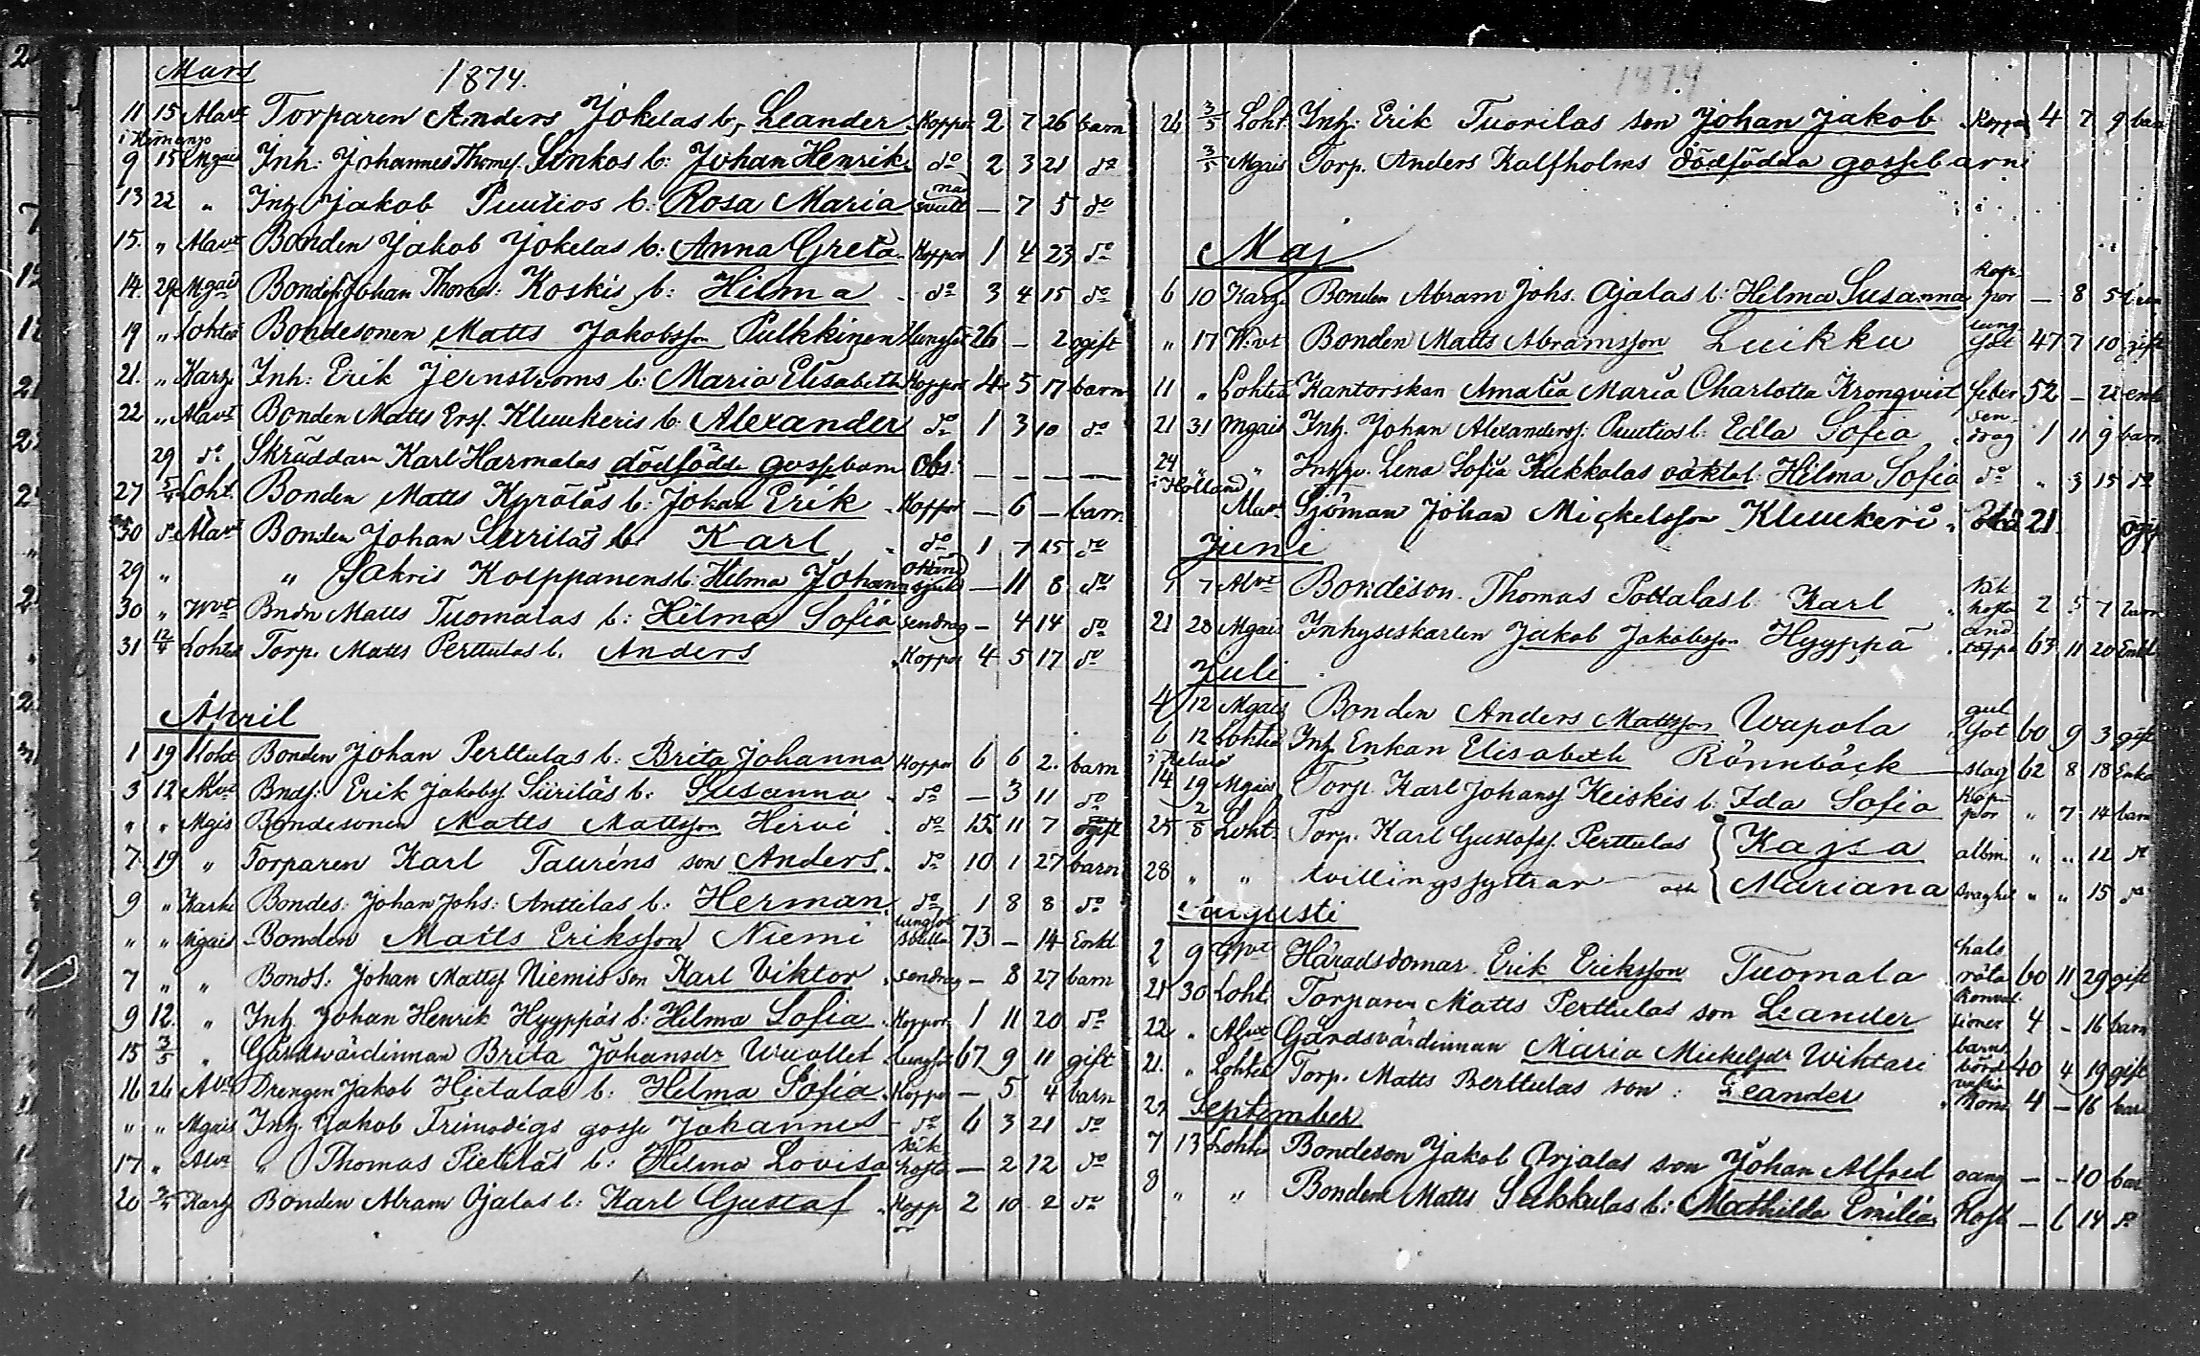 Mars 1874.
11 15 Alavt Torparen Anders Jokelas b. Leander Koppor 2 7 26 barn
i Himango
9 15 Mgais Inh: Johannes Thomes. Sinkos b: Johan Henrik do 2 3 21 do
13 22 " Inh Jakob Puutios b. Rosa Maria — 7 5 do
15. " Alavt Bonden Jakob Jokelas b: Anna Greta Koppor 1 4 23 do
14 29 Mgais Johan Thomes: Koskis b: Hilma do 3 4 15 do
19 " Lohteå Bondesonen Matts Jakobsson Pulkkinen Lungsot 26 — 2 ogift
21. " Karhi Inh: Erik Jernströms b: Maria Elisabeth Koppor 4 5 17 barn
22 " Alavt Bonden Matts Ersf. Kluukeris b. Alexander do 1 3 10 do
29 do Skräddarn Karl Harmalas dödfödda gossebarn Obs: — — — —
27 5/4 Loht. Bonden Matts Kyröläs b: Johan Erik Koppor — 6 — barn
30 do Alavt Bonden Johan Siirilas b. Karl do 1 7 15 do
29 " " Sakris Kolppanens b: Hilma Johanna okänd sjukd — 11 8 do
30 " Wvt Bndn Matts Tuomalas b: Hilma Sofia sendrag — 4 14 do
31 12/4 Lohteå Torp. Matts Perttulas b. Anders Koppor 4 5 17 do
April
1 19 Loht Bonden Johan Perttulas b: Brita Johanna Koppor 6 6 2. barn
3 12 Alvt Bndf: Erik Jakobsf. Siiriläs b: Susanna do — 3 11 do
" " Mgis Bondesonen Matts Mattsson Hirvi do 15 11 7 ogift
7 19 " Torparen Karl Tauréns son Anders. do 10 1 27 barn
9 " Karhi Bondes: Johan Johs: Anttilas b. Herman. do 1 8 8 do
" " Mgais Bonden Matts Eriksson Niemi 73 — 14 Enkl
7 " " Bonds: Johan Mattsf Niemis son Karl Viktor sendrag — 8 27 barn
9 12. " Inh. Johan Henrik Hyyppäs b: Hilma Sofia Koppor 1 11 20 do
15 3/5 " Gårdsvärdinnan Brita Johansdr Wuollet Lungsot 67 9 11 gift
16 26 Avt Drengen Jakob Hietalas b: Hilma Sofia Koppor — 5 4 barn
" " Mgais Inh. Jakob Frimodigs gosse Johannes do 6 3 21 do
17 " Alvt " Thomas Pietiläs b: Hilma Lovisa kik hosta — 2 12 do
20 3/5 Karhi Bonden Abram Ojalas b: Karl Gustaf Koppor 2 10 2 do
1874
26 3/5 Loht Inh. Erik Tuorilas son Johan Jakob Koppor 4 7 9 barn
3/5 Mgais Torp. Anders Kalfholms dödfödda gossebarn
Maj
6 10 Karhi Bonden Abram Johs. Ojalas b: Hilma Susanna Koppor — 8 5 barn
" 17 Wvt Bonden Matts Abramsson Luikku lungsot 47 7 10 gift
11 " Lohteå Kantorskan Amalia Maria Charlotta Kronqvist feber 52 — 21 enka
21 31 Mgais Inh. Johan Alexandersf. Puutios b: Edla Sofia sendrag 1 11 9 barn
24 " " Lena Sofia Kukkolas oäkta b: Hilma Sofia do " 3 15 do
i Holland Alavt Sjöman Johan Mickelsson Kluukeri 21 ogift
Juni
7 Alvt Bondeson Thomas Pottalas b: Karl kik hosta 2 5 7 barn
21 28 Mgais Inhyseskarlen Jakob Jakobsson Hyyppä andtäppa 63 11 20 Enkl
Juli
4 12 Mgais Bonden Anders Mattsson Wapola gulsot 60 9 3 gift
6 12 Lohteå Inh Enkan Elisabeth Rönnbäck slag 62 8 18 Enka
14 19 Mgais Torp. Karl Johansf Keiskis b: Ida Sofia Koppor " 7 14 barn
25 2/8 Loht. Torp. Karl Gustafsf. Perttulas Kajsa allm. " " 12 do
28 " " tvillingssystrar och Mariana svaghet " " 15 do
Augusti
2 9 Häradsdomar Erik Eriksson Tuomala halsröta 60 11 29 gift
21 30 Loht. Torparen Matts Perttulas son Leander Konvulsioner 4 — 16 barn
22 " Alvt Gårdsvärdinnan Maria Mickelsdr Wiktari barnsbörd 40 4 19 gift
21. " Lohteå Torp. Matts Berttulas son: Leander 4 — 16 barn
September
7 13 Lohteå Bondeson Jakob Orjalas son Johan Alfred — — 10 barn
8 " " Bonden Matts Sukkulas b: Mathilda Emilia Host — 6 14 do